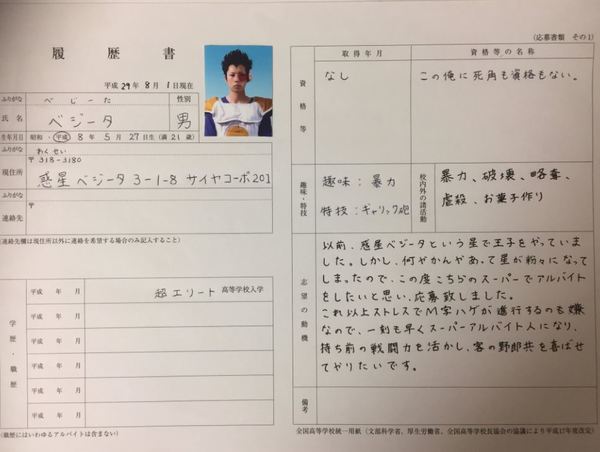 (応募書類 その1)
履歴書
平成29年8月1日現在
ふりがな べじーた 性別
氏名 ベジータ 男
生年月日 昭和・平成 8年5月27日生(満21歳)
ふりがな わくせい
〒318-3180
現住所 惑星ベジータ3-1-8 サイヤコーポ201
ふりがな
連絡先 〒
(連絡先欄は現住所以外に連絡を希望する場合のみ記入すること)
学歴・職歴
平成 年 月 超エリート 高等学校入学
平成 年 月
平成 年 月
平成 年 月
平成 年 月
平成 年 月
平成 年 月
(職歴にはいわゆるアルバイトは含まない)
資格等
取得年月 資格等の名称
なし この俺に死角も資格もない。
趣味・特技
趣味:暴力
特技:ギャリック砲
校内外の諸活動
暴力、破壊、略奪、
虐殺、お菓子作り
志望の動機
以前、惑星ベジータという星で王子をやっていま
した。しかし、何やかんやあって星が粉々になって
しまったので、この度こちらのスーパーでアルバイト
をしたいと思い、応募致しました。
これ以上ストレスでM字ハゲが進行するのも嫌
なので、一刻も早くスーパーアルバイト人になり、
持ち前の戦闘力を活かし、客の野郎共を喜ばせ
てやりたいです。
備考
全国高等学校統一用紙(文部科学省、厚生労働省、全国高等学校長協会の協議により平成17年度改定)